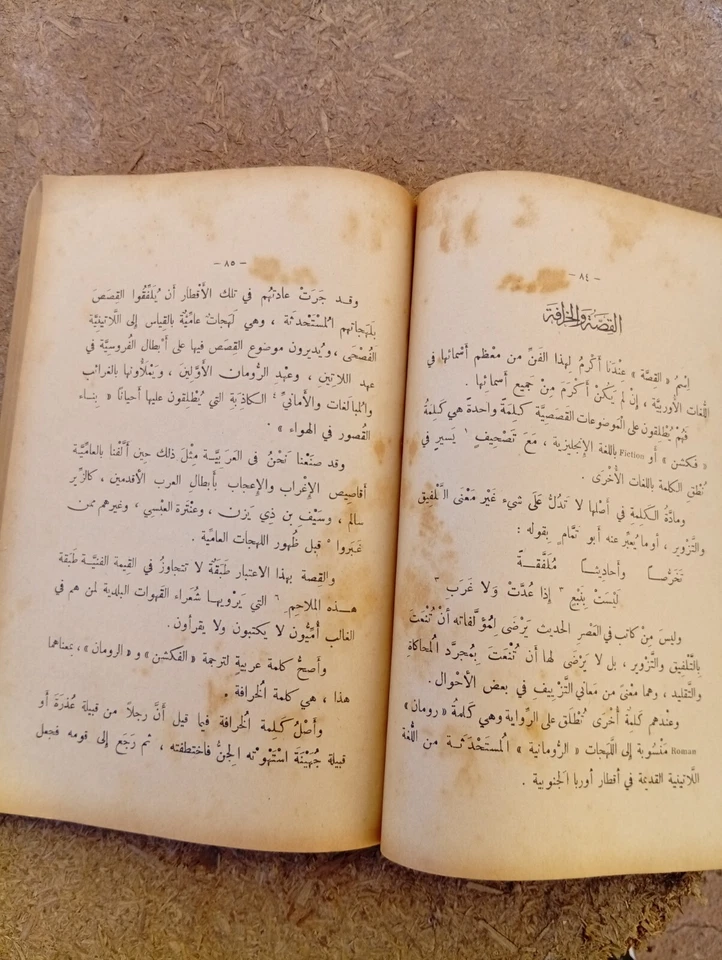 – ٨٤ –
القصة والخرافة
إسْمُ « القِصَّة » عِنْدَنا أكْرَمُ لِهذا الفَنِّ من مُعْظَم أسْمائها في
اللُّغات الأُوربيَّة ، إنْ لم يَكُنْ أكْرَمَ مِنْ جَميع أسْمائها .
فَهُمْ يُطْلقون على الموضوعات القصَصيَّة كَلِمَةً واحدةً هي كَلِمَةُ
« فِكشن » أو Fiction باللغة الإنجليزية ، مَعَ تَصْحيف ١ يَسيرٍ في
نُطْقِ الكلمة باللغات الأُخْرَى .
ومادَّةُ الكَلِمة في أصْلها لا تَدُلُّ عَلَى شيء غَيْر مَعْنَى التَّلْفيق
والتَّزْوير ، أو ما يُعبِّر عنه أبو تَمَّام بقوله :
تَخَرُّصاً وأحاديثاً مُلَفَّقَةً
لَيْسَتْ بِنَبْعٍ ٢ إذا عُدَّتْ وَلا غَرَبِ ٣
وليسَ مِنْ كاتب في العَصْر الحديث يَرْضَى لِمُؤلَّفاته أنْ تُنْعَتَ
بالتَّلْفيق والتَّزْوير ، بل لا يَرْضَى لها أن تُنْعَتَ بِمُجرَّدِ المُحاكاةِ
والتَّقليد ، وهما مَعْنىً من مَعاني التَّزْييف في بعض الأحْوال .
وعِنْدهم كَلِمَةٌ أُخْرَى تُطْلَق على الرِّواية وهي كَلِمةُ « رومان »
Roman مَنْسُوبة إلى اللَّهَجات « الرُّومانية » المُسْتَحْدَثَة من اللُّغة
اللَّاتينية القديمة في أقطار أوربا الجَنوبية .
– ٨٥ –
وقد جَرَتْ عادتُهم في تلك الأقْطار أن يُلَفِّقُوا القِصَصَ
بلَهَجاتهم المُسْتَحْدَثة ، وهي لَهَجاتٌ عامِّيَّةٌ بالقياس إلى اللَّاتينيَّة
الفُصْحَى ، ويُديرون موضوع القِصَص فيها على أبْطال الفُروسيَّة في
عهد اللاتين ، وعهْدِ الرُّومان الأوَّلين ، ويَمْلَأونها بالغَرائب
والمُبالَغات والأمانيِّ ٤ الكاذبَة التي يُطْلقون عليها أحياناً « بِناء
القُصور في الهواء » .
وقد صَنَعْنا نَحْنُ في العَرَبيَّة مِثْلَ ذلك حِين ألَّفْنا بالعامِّيَّة
أقاصيصَ الإغْراب والإعْجاب بأبطال العرب الأقدمين ، كالزِّير
سالم ، وسَيْف بن ذي يَزن ، وعنْترة العبْسي ، وغيرهم ممن
غَبَروا ٥ قبل ظُهور اللهجات العامِّية .
والقِصة بهذا الاعتبار طَبَقَةٌ لا تتجاوزُ في القيمة الفنِّيَّة طَبَقَة
هـذه الملاحم ٦ التي يَرْويها شُعراء القهوات البلدية لمن هم في
الغالب أُمِّيُّون لا يكتبون ولا يقرأون .
وأصَحُّ كلمة عربية لترجمة « الفكشن » و « الرومان » ، بمعناهما
هذا ، هي كلمة الخرافة .
وأصْلُ كَلِمة الخُرافة فيما قيل أنَّ رجلاً من قبيلة عُذرَة أو
قبيلة جُهَيْنَة اسْتَهْوَتْه الجنُّ فاختطفته ، ثم رَجَع إلى قومه فجعل